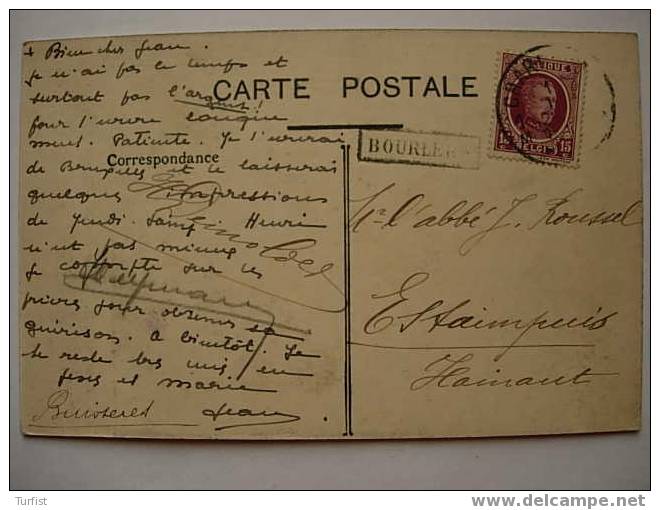 + Bien cher Jean.
Je n'ai pas le temps et
surtout pas l'argent!
pour t'écrire longue
ment. Patiente. Je t'écrirai
de Bruges et te laisserai
quelques impressions
de Jeudi-Saint. Henri
n'est pas mieux
Je compte sur tes
prières pour obtenir sa
guérison. A bientôt. Je
te reste très uni en
Jésus et Marie
Jean.
CARTE POSTALE
Correspondance
BOURLERS
15
Mr l'abbé J. Roussel
Estaimpuis
Hainaut
Turfist
www.delcampe.net